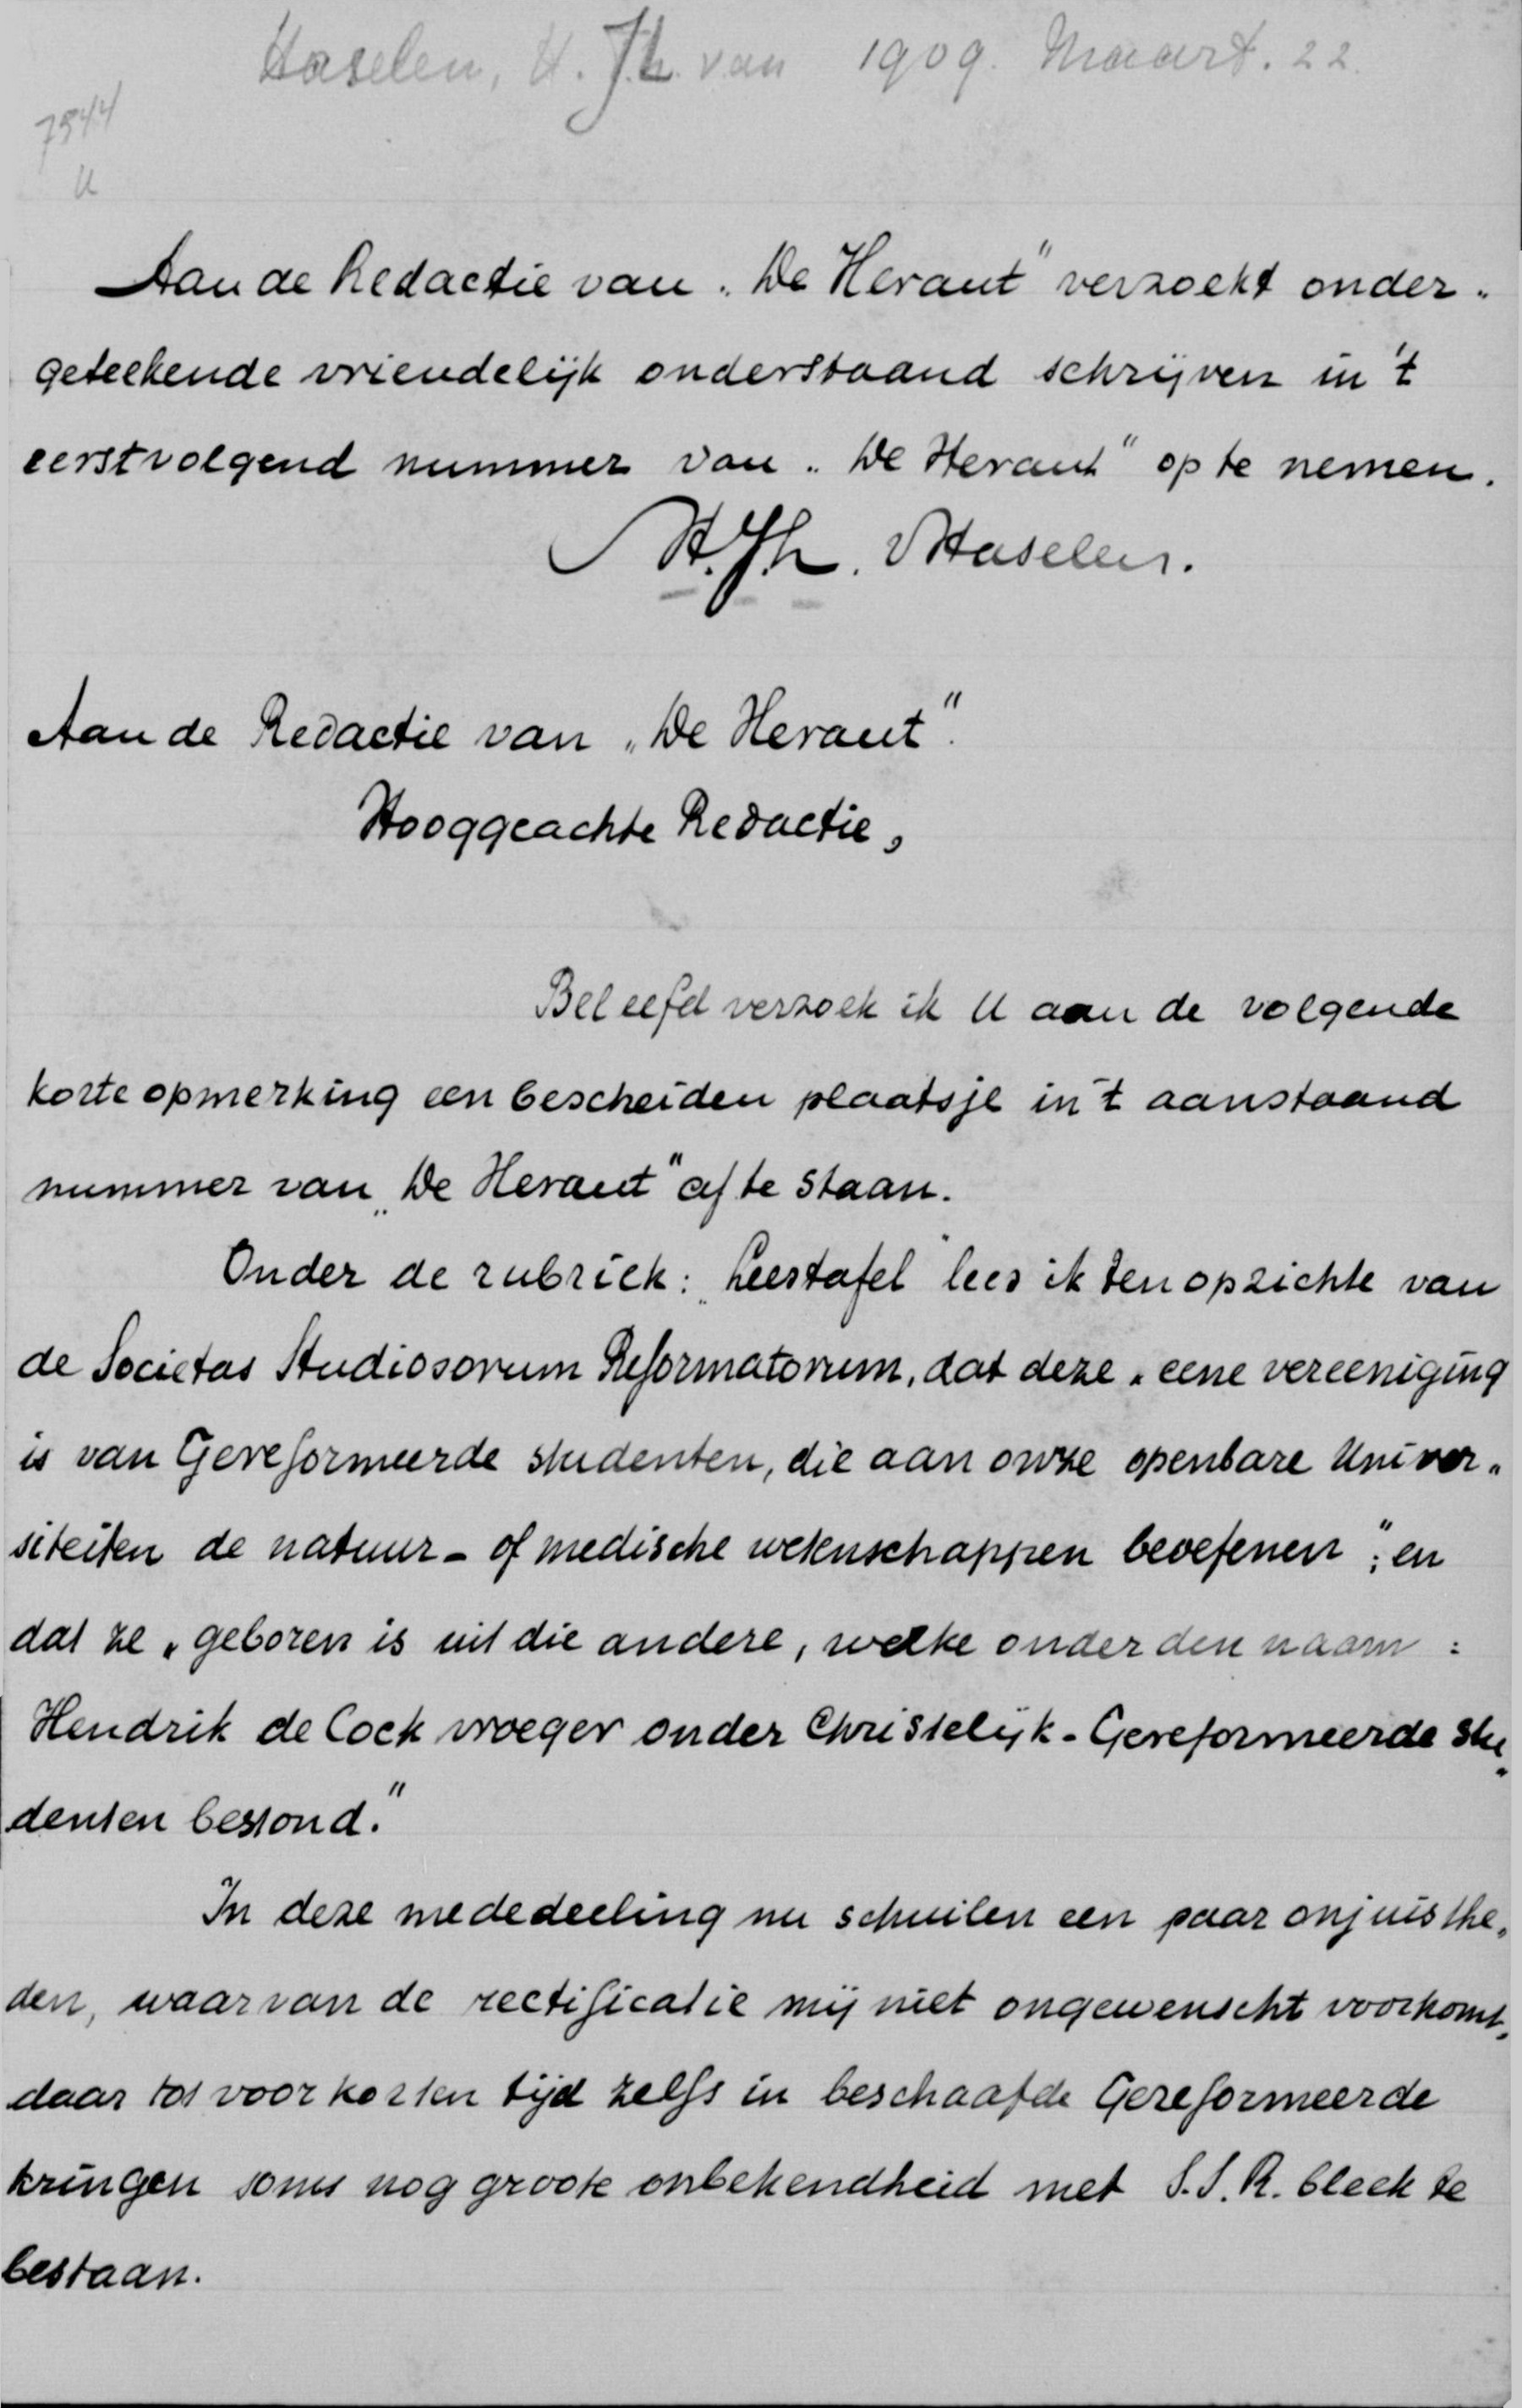 Haselen, H. Th. van 1909. Maart. 22.
7544
U
Aan de Redactie van „De Heraut" verzoekt onder„
geteekende vriendelijk onderstaand schrijven in 't
eerstvolgend nummer van „De Heraut" op te nemen.
H. Th. v Haselen.
Aan de Redactie van „De Heraut".
Hooggeachte Redactie,
Beleefd verzoek ik U aan de volgende
korte opmerking een bescheiden plaatsje in 't aanstaand
nummer van „De Heraut" af te staan.
Onder de rubriek: „Leestafel" lees ik ten opzichte van
de Societas Studiosorum Reformatorum, dat deze „eene vereeniging
is van Gereformeerde studenten, die aan onze openbare Univer„
siteiten de natuur- of medische wetenschappen beoefenen"; en
dat ze „geboren is uit die andere, welke onder den naam :
Hendrik de Cock vroeger onder Christelijk-Gereformeerde stu„
denten bestond."
In deze mededeeling nu schuilen een paar onjuisthe„
den, waarvan de rectificatie mij niet ongewenscht voorkomt,
daar tot voor korten tijd zelfs in beschaafde Gereformeerde
kringen soms nog groote onbekendheid met S.S.R. bleek te
bestaan.